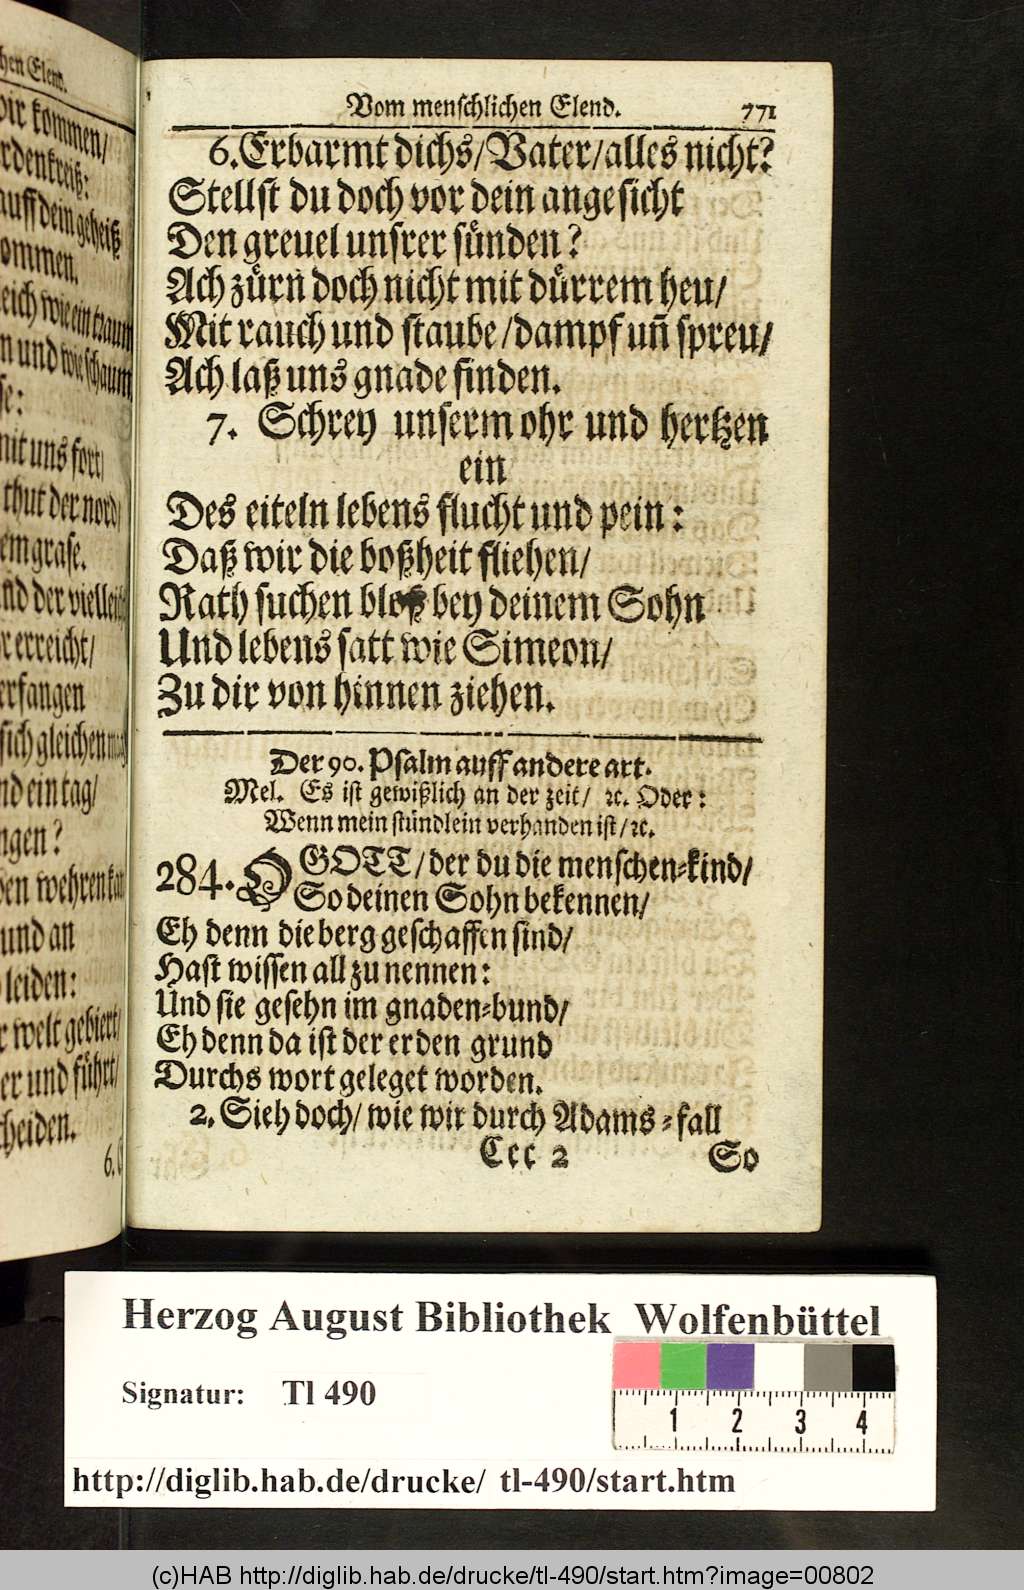 chen Elend.
dir kommen/
rdenkreiß:
auff dein geheiß
ommen.
eich wie ein traum
n und wie schaum
se:
mit uns fort/
thut der nord/
em grase.
nd der vielleicht
r erreicht/
erfangen
sich gleichen
nd ein tag/
ngen?
den wehren kan
und an
leiden:
r welt gebiert/
er und führt/
cheiden.
6.
Vom menschlichen Elend. 771
6. Erbarmt dichs/ Vater/ alles nicht?
Stellst du doch vor dein angesicht
Den greuel unsrer sünden?
Ach zürn doch nicht mit dürrem heu/
Mit rauch und staube/ dampf uñ spreu/
Ach laß uns gnade finden.
7. Schrey unserm ohr und hertzen
ein
Des eiteln lebens flucht und pein:
Daß wir die boßheit fliehen/
Rath suchen bloß bey deinem Sohn
Und lebens satt wie Simeon/
Zu dir von hinnen ziehen.
Der 90. Psalm auff andere art.
Mel. Es ist gewißlich an der zeit/ ꝛc. Oder:
Wenn mein stündlein verhanden ist/ ꝛc.
284. O GOTT/ der du die menschen-kind/
So deinen Sohn bekennen/
Eh denn die berg geschaffen sind/
Hast wissen all zu nennen:
Und sie gesehn im gnaden-bund/
Eh denn da ist der erden grund
Durchs wort geleget worden.
2. Sieh doch/ wie wir durch Adams-fall
Ccc 2 So
Herzog August Bibliothek Wolfenbüttel
Signatur: Tl 490
1 2 3 4
http://diglib.hab.de/drucke/ tl-490/start.htm
(c)HAB http://diglib.hab.de/drucke/tl-490/start.htm?image=00802